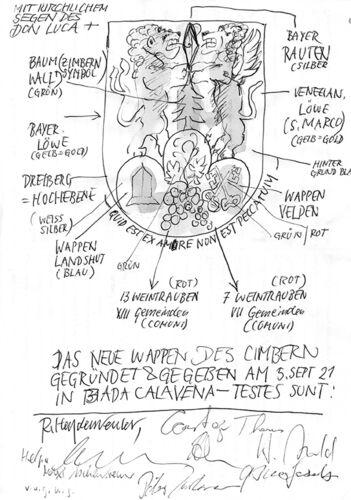 MIT KIRCHLICHEM
SEGEN DES
DON LUCA +
BAUM (ZIMBERN
WALD SYMBOL
(GRÜN)
BAYER.
LÖWE
(GELB=GOLD)
DREIBERG
= HOCHEBENE
(WEISS
SILBER)
WAPPEN
LANDSHUT
(BLAU)
BAYER
RAUTEN
(SILBER
VENEZIAN.
LÖWE
(S. MARCO)
(GELB=GOLD
HINTER
GRUND BLAU
WAPPEN
VELDEN
GRÜN/ROT
QUID EST EX AMORE NON EST PECCATUM
GRÜN
(ROT)
13 WEINTRAUBEN
XIII Gemeinden
(COMUNI)
(ROT)
7 WEINTRAUBEN
VII Gemeinden
(COMUNI)
DAS NEUE WAPPEN DES CIMBERN
GEGRÜNDET & GEGEBEN AM 5. SEPT 21
IN BADA CALAVENA – TESTES SUNT: